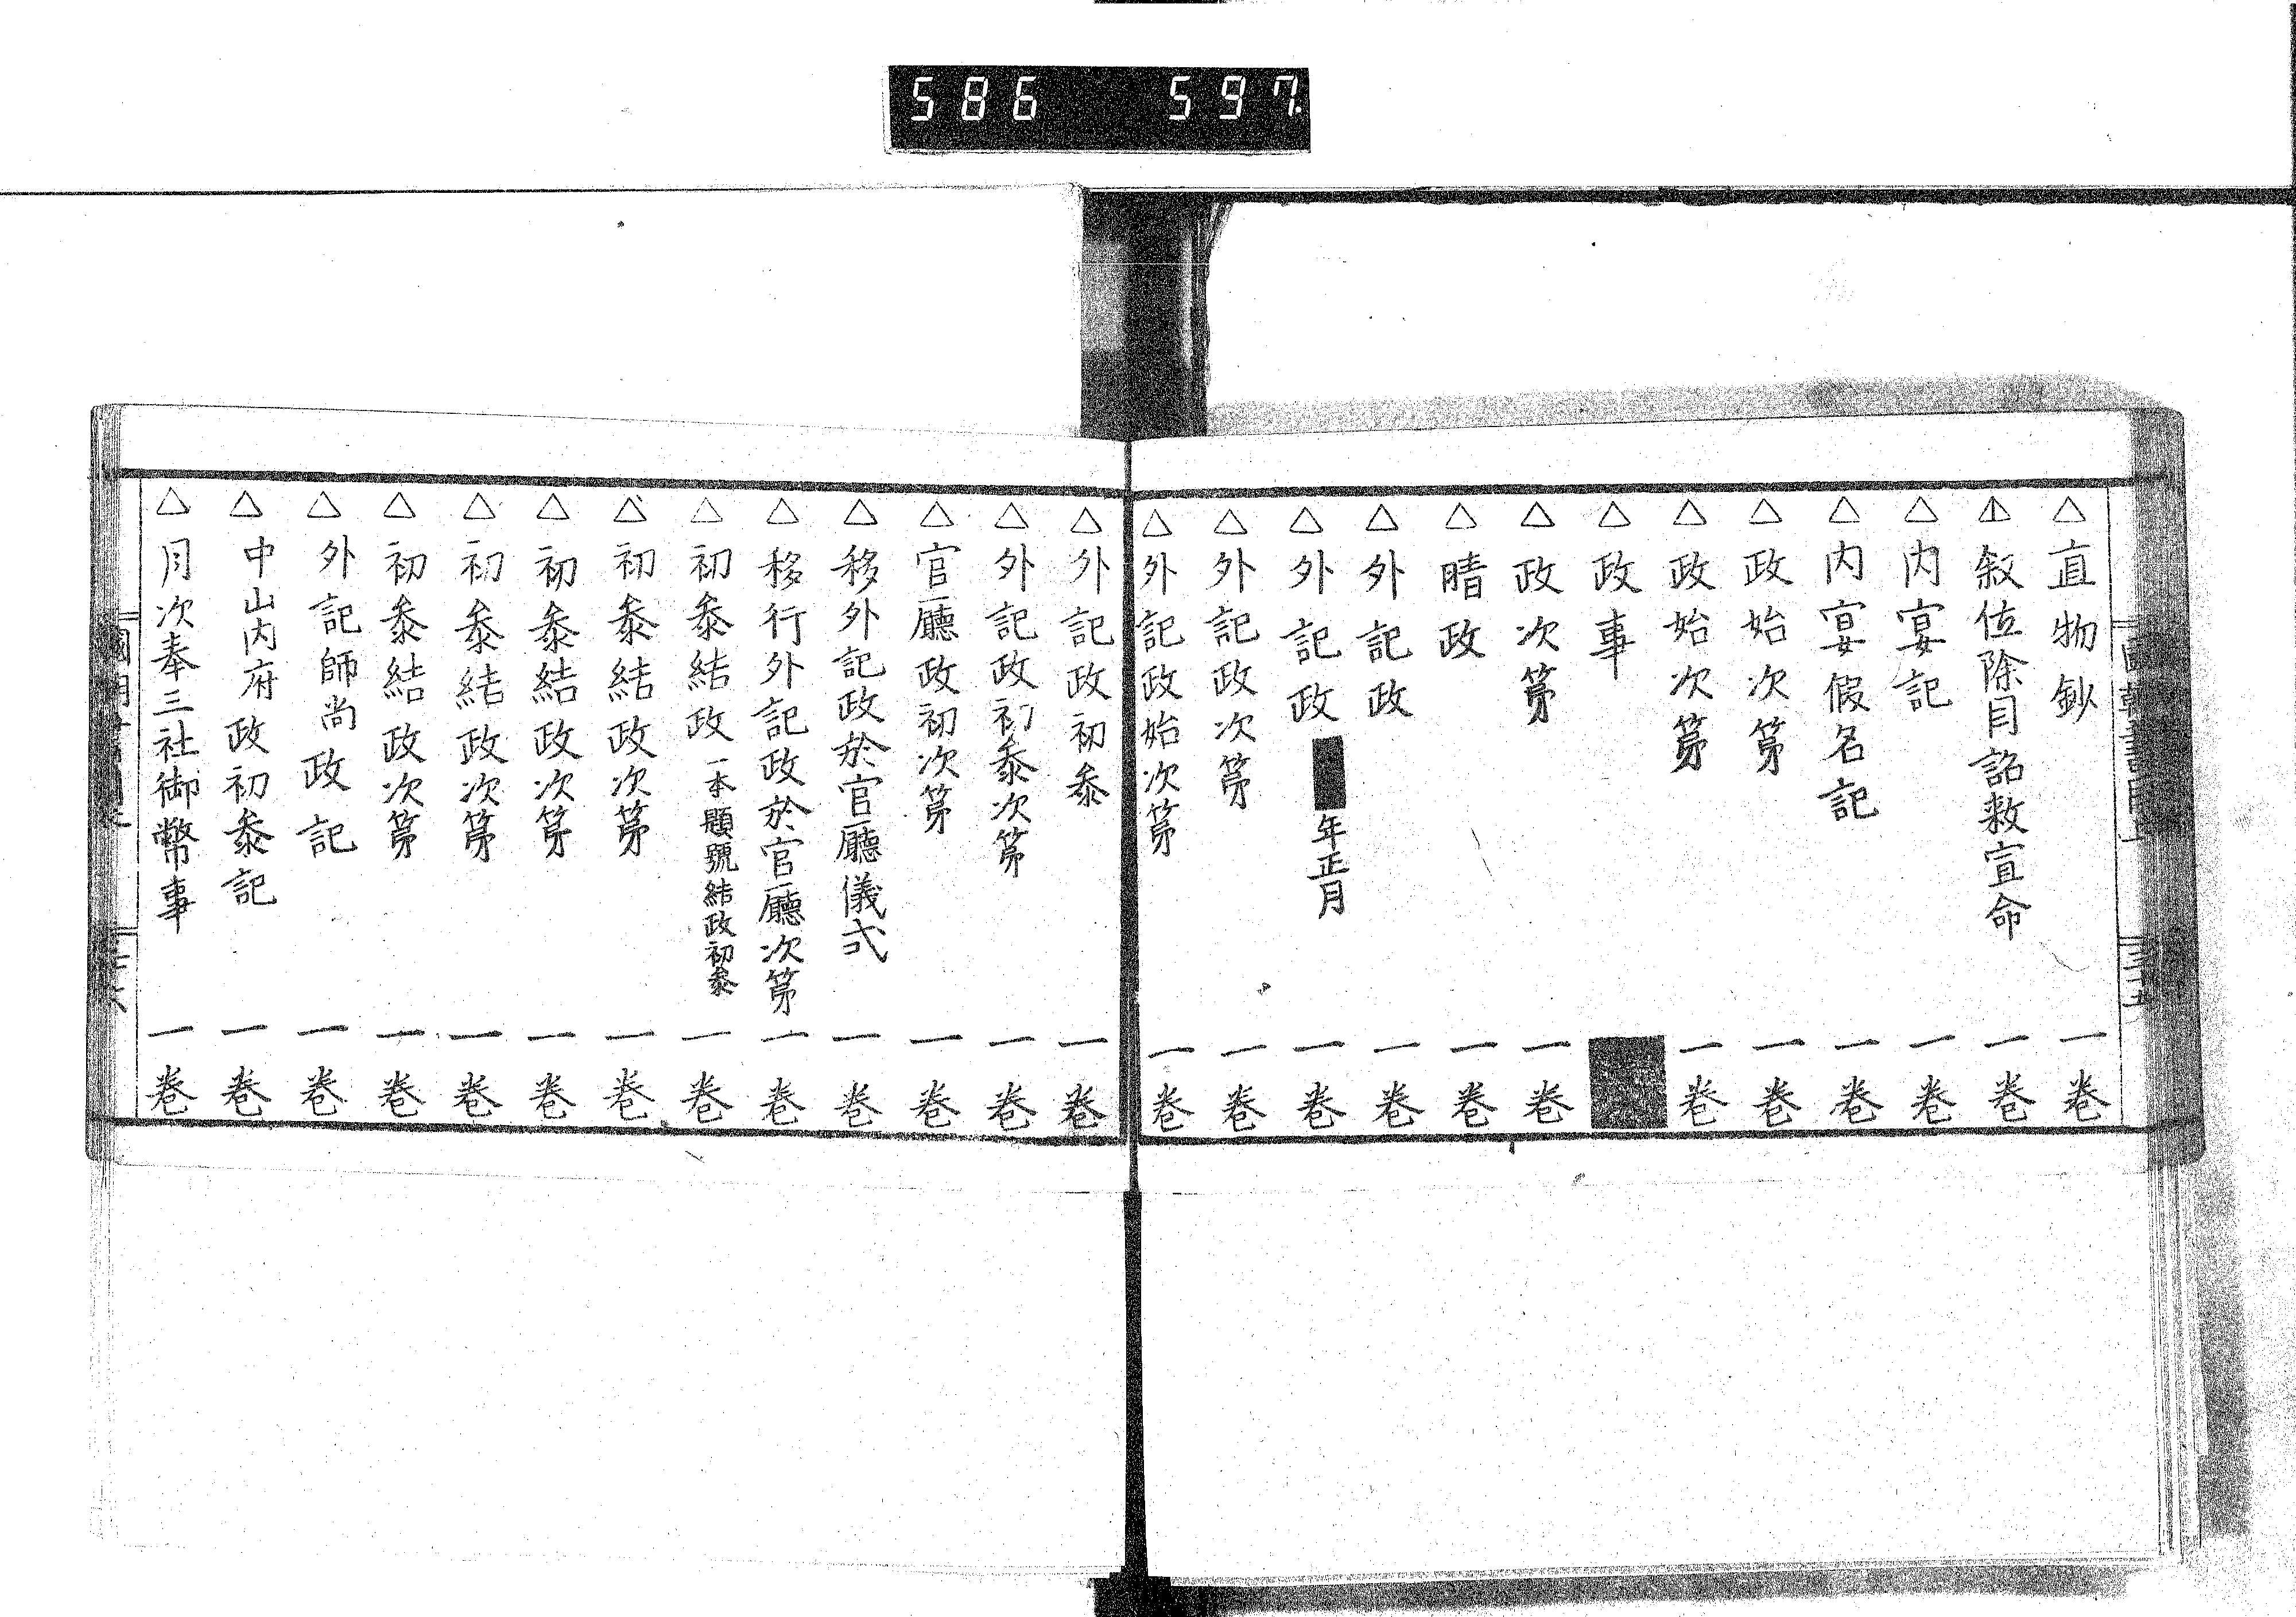 586 597.
△直物鈔 一卷
△叙位除目詔敕宣命 一卷
△内宴記 一卷
△内宴假名記 一卷
△政始次第 一卷
△政始次第 一卷
△政事
△政次第 一卷
△晴政 一卷
△外記政 一卷
△外記政■年正月 一卷
△外記政次第 一卷
△外記政始次第 一卷
△外記政初叅 一卷
△外記政初叅次第 一卷
△官廳政初次第 一卷
△移外記政於官廳儀式 一卷
△移行外記政於官廳次第 一卷
△初叅結政一本題號結政初叅 一卷
△初叅結政次第 一卷
△初叅結政次第 一卷
△初叅結政次第 一卷
△初叅結政次第 一卷
△外記師尚政記 一卷
△中山内府政初叅記 一卷
△月次奉三社御幣事 一卷